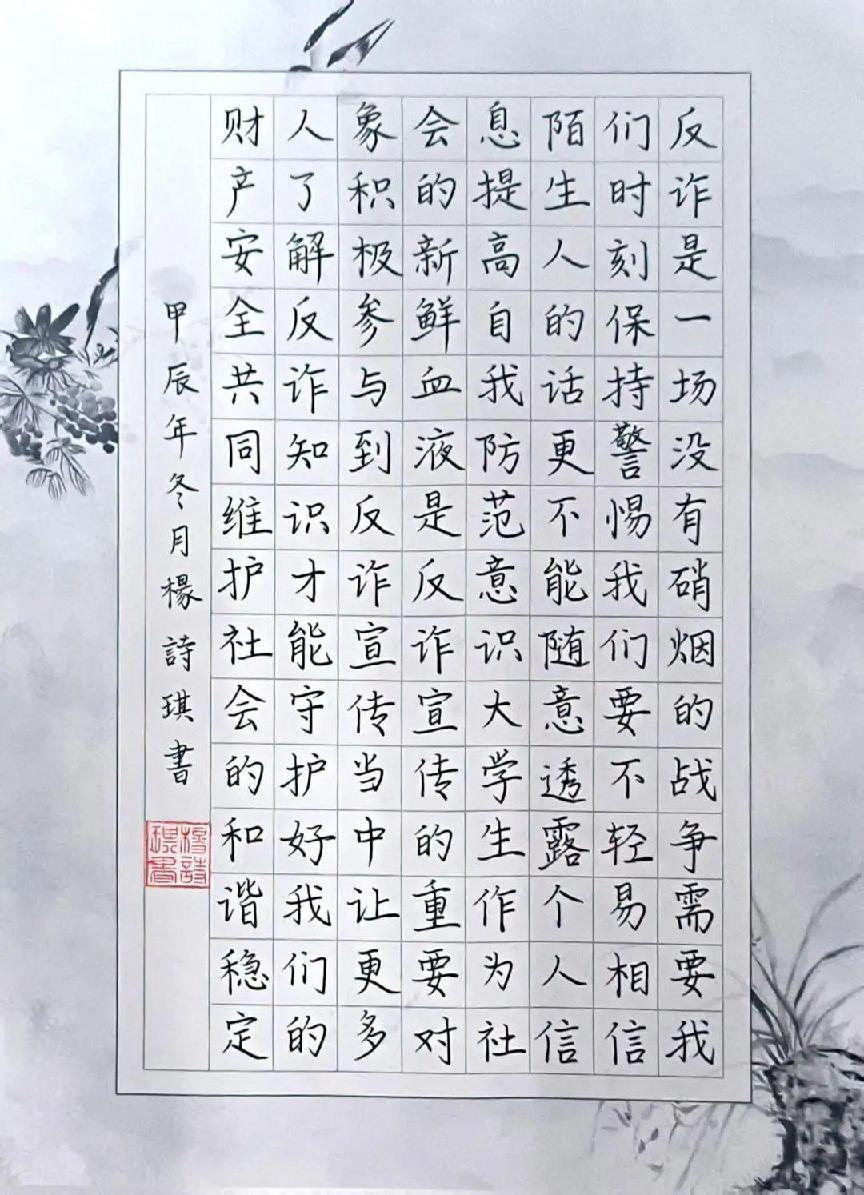 反诈是一场没有硝烟的战争需要我
们时刻保持警惕我们要不轻易相信
陌生人的话更不能随意透露个人信
息提高自我防范意识大学生作为社
会的新鲜血液是反诈宣传的重要对
象积极参与到反诈宣传当中让更多
人了解反诈知识才能守护好我们的
财产安全共同维护社会的和谐稳定
甲辰年冬月楊詩琪書
楊詩
琪書